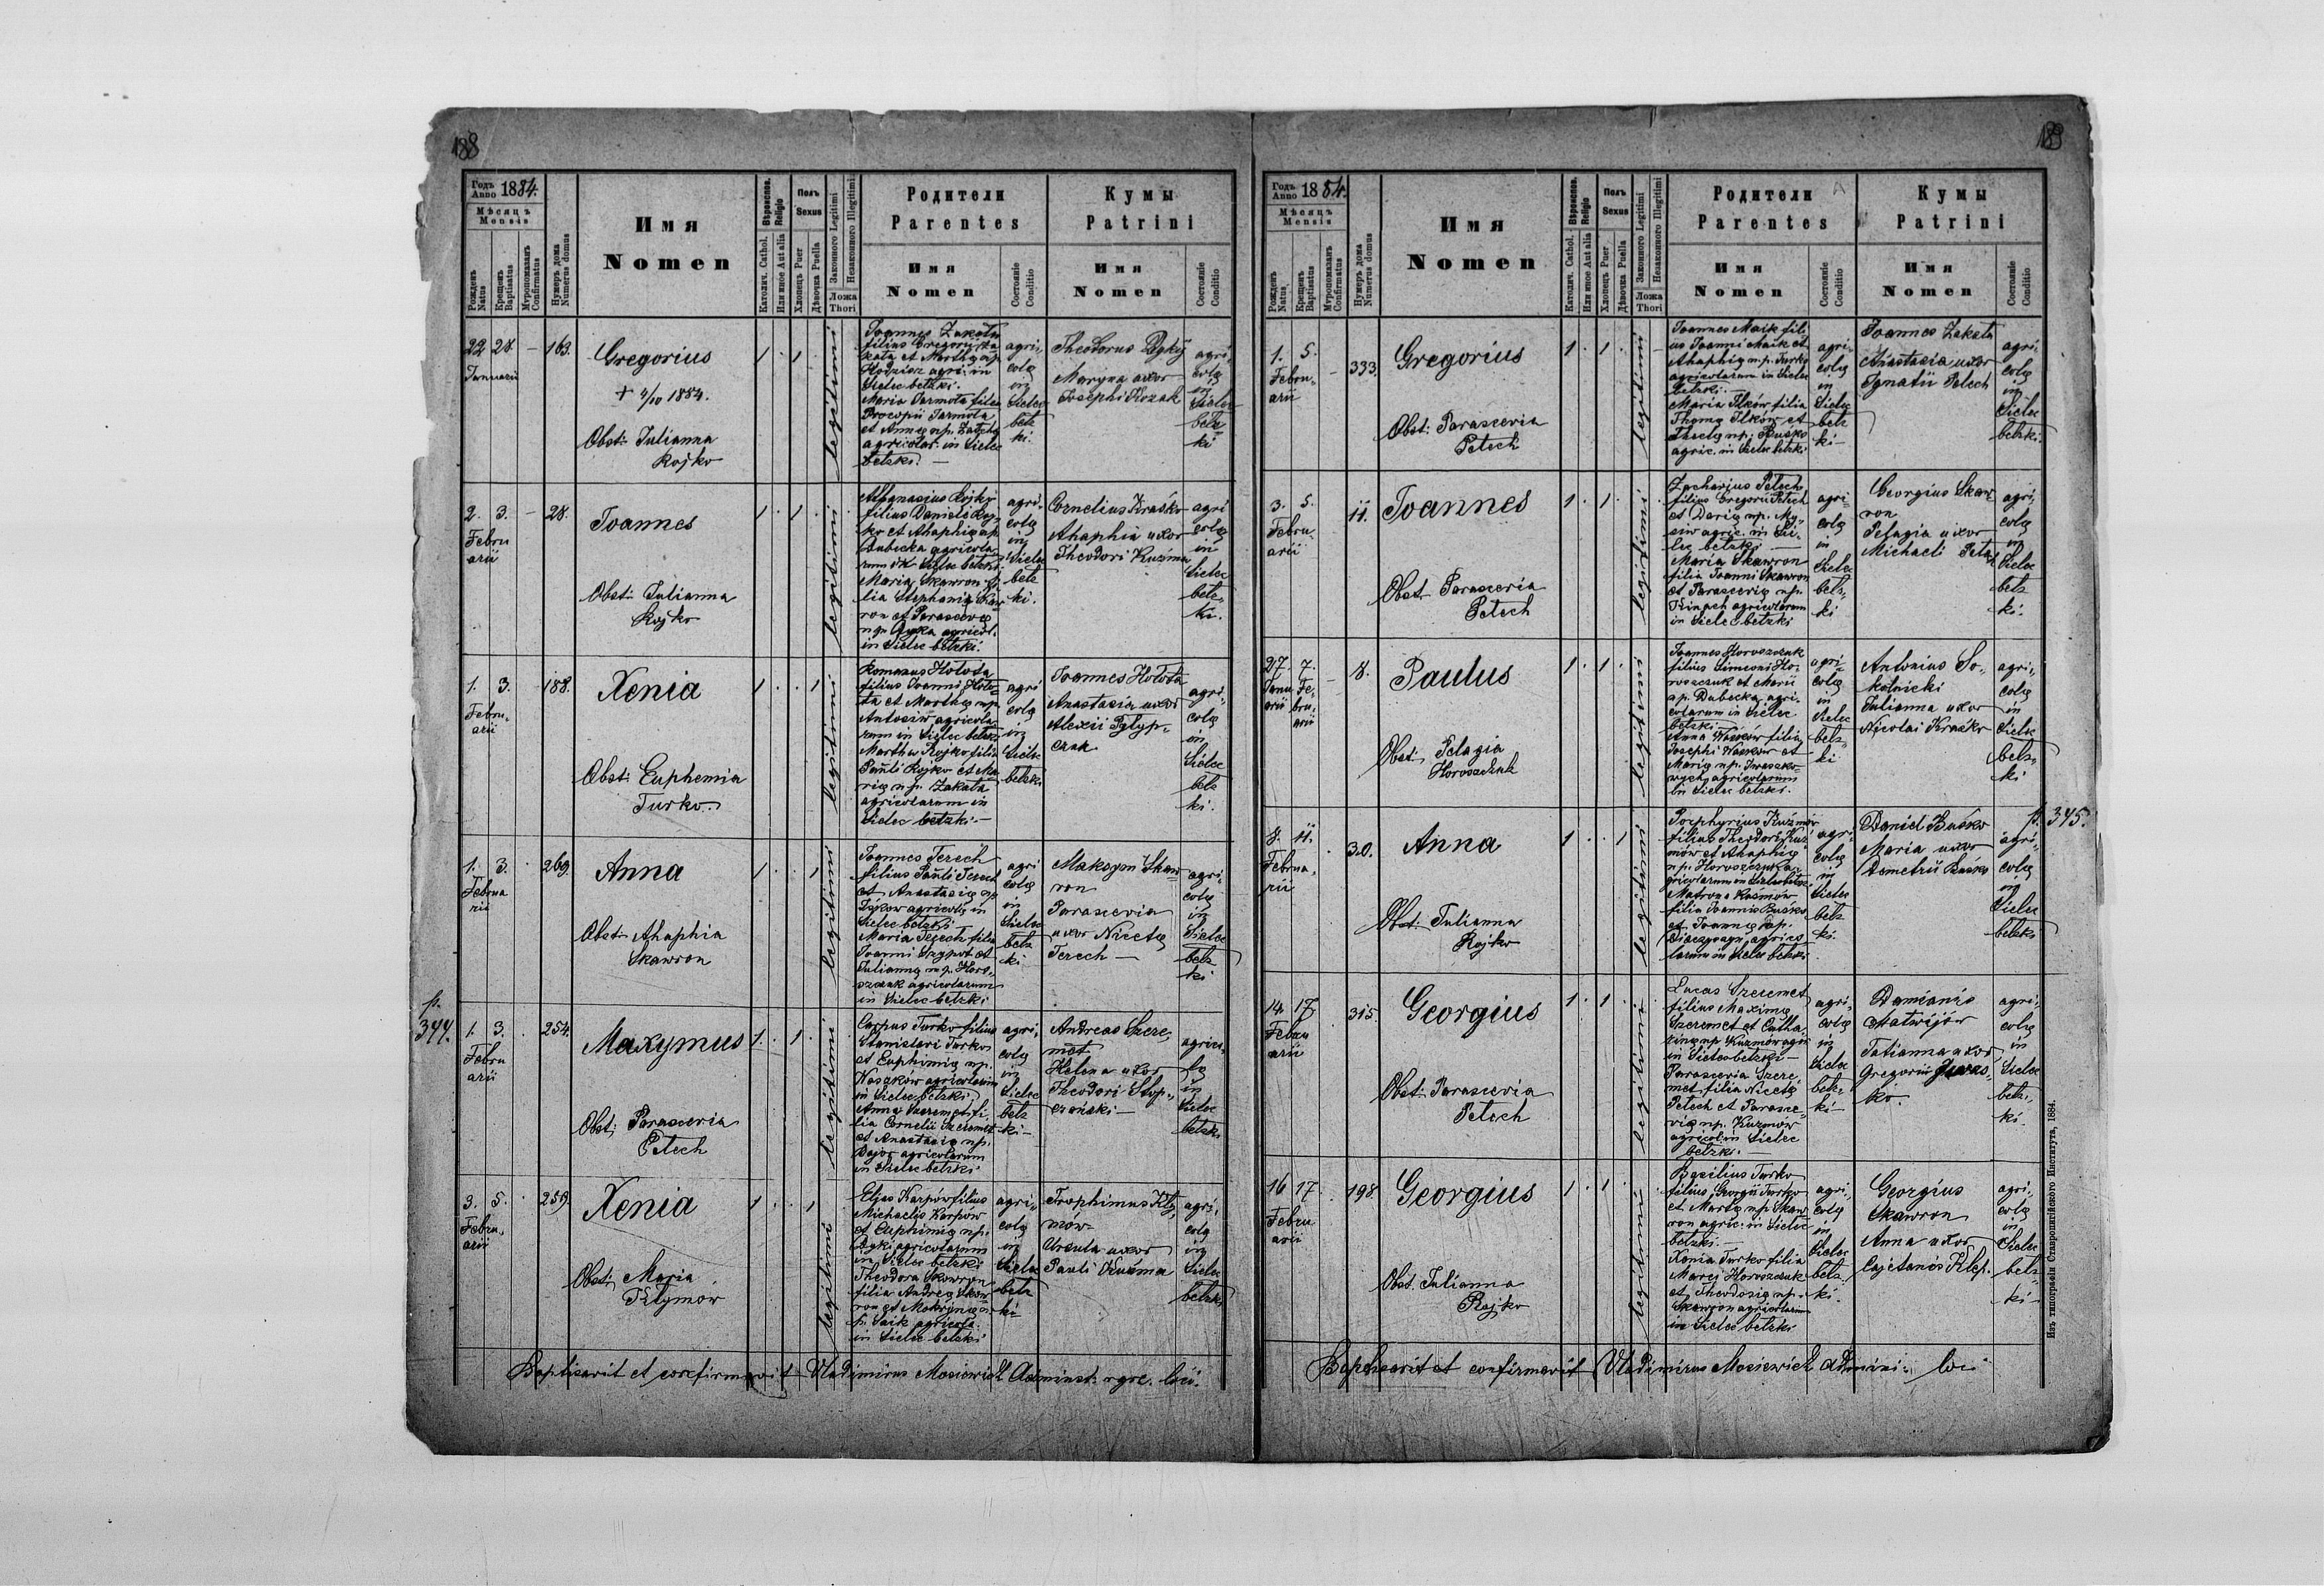 188
Годъ Anno 1884.
Мѣсяцъ
Mensis
Рожденъ Natus
Крещенъ Baptisatus
Мѵропомазанъ Confirmatus
Нумеръ дома Numerus domus
Имя
Nomen
Вѣроиспов. Religio
Католич. Cathol.
Или иное Aut alia
Полъ
Sexus
Хлопецъ Puer
Дѣвочка Puella
Законного Legitimi
Незаконного Illegitimi
Ложа
Thori
Родители
Parentes
Имя
Nomen
Состояніе
Conditio
Кумы
Patrini
Имя
Nomen
Состояніе
Conditio
22 28 – 163.
Januarii
Gregorius
Obst: Julianna
Rojko
1 . 1 .
legitimi
Joannes Zakata
filius Gregorii Za
kata et Marthę n.p.
agric. in
Sielec bełzki.
Maria Jarmoła filia
Procopii Jarmoła
et Annę n.p.
agricolar. in Sielec
bełzki. –
agri,
colę
in
Sielec
bełz
ki.
Theodorus Dyky
Maryna uxor
Josephi Kozak
agri,
colę
in
Sielec
bełz
ki
2. 3. – 28.
Febru
arii
Joannes
Obst: Julianna
Rojko
1 . 1 .
legitimi
Athanasius Rojko
filius Danieli Roj,
ko et Ahaphię n.p.
Dubecka agricola,
rum in Sielec bełzki.
Maria Skawron fi,
lia Stephanię Skaw
ron et Parascevę
n.p. Dyka agricol.
in Sielec bełzki.
agri,
colę
in
Sielec
bełz
ki.
Cornelius Kraśko
Ahaphia uxor
Theodori Kuźma
agri
colę
in
Sielec
bełz,
ki.
1. 3. 188.
Febru,
arii
Xenia
Obst: Euphemia
Turko
1 . . 1
legitimi
Romanus Hołota
filius Joanni Hoło,
ta et Marthę n.p.
Antosiw agricola,
rum in Sielec bełzki
Martha Rojko filia
Pauli Rojko et Ma
rię n.p. Zakata
agricolarum in
Sielec bełzki. –
agri
colę
in
Sielec
bełzki
Joannes Hołota
Anastasia uxor
Alexii Pylyp,
czuk
agri,
colę
in
Sielec
bełz
ki.
1. 3. 269.
Februa
rii
Anna
Obst: Ahaphia
Skawron
1 . . 1
legitimi
Joannes Terech
filius Pauli Terech
et Anastasię n.p.
agricolę in
Sielec bełzki
Maria Terech filia
Joanni et
Julianna n.p. Horo,
szczuk agricolarum
in Sielec bełzki
agri
colę
in
Sielec
bełz
ki
Maksym Skaw
ron
Parascevia
uxor Nicetę
Terech –
agri,
colę
in
Sielec
bełz
ki
p.
344.
1. 3. 254.
Febru
arii
Maxymus
Obst: Parascevia
Petech
1. . 1 .
legitimi
Carpus Turko filius
Stanislavi Turko
et Euphimię n.p.
Waśków agricolarum
in Sielec bełzki
Anna Szeremet fi,
lia Cornelii Szeremet
et Anastasię n.p.
Bajor agricolarum
in Sielec bełzki
agri,
colę
in
Sielec
bełz
ki –
Andreas Szere,
met
Helena uxor
Theodori Stop,
czański –
agrico,
lę
in
Sielec
bełzki
3. 5. 259.
Febru,
arii
Xenia
Obst: Maria
Kłymów
1 . . 1
legitimi
Elias Karpów filius
Michaelis Karpów
et Euphimię n.p.
Dyki agricolarum
in Sielec bełzki
Theodora Skowron
filia Andreę Skow
ron et Mokrynię n.
p. Saik agricola.
in Sielec bełzki
agri,
colę
in
Sielec
bełz
ki
Trophimus Kły,
mów
Ursula uxor
Pauli Kuźma
agri,
colę
in
Sielec
bełzki
Baptisavit et confirmavit Vladimirus Mosiewicz Administ. rgrc. loci.
189
Годъ Anno 1884.
Мѣсяцъ
Mensis
Рожденъ Natus
Крещенъ Baptisatus
Мѵропомазанъ Confirmatus
Нумеръ дома Numerus domus
Имя
Nomen
Вѣроиспов. Religio
Католич. Cathol.
Или иное Aut alia
Полъ
Sexus
Хлопецъ Puer
Дѣвочка Puella
Законного Legitimi
Незаконного Illegitimi
Ложа
Thori
Родители
Parentes
Имя
Nomen
Состояніе
Conditio
Кумы
Patrini
Имя
Nomen
Состояніе
Conditio
1. 5. – 333.
Febru,
arii
Gregorius
Obst: Parascevia
Petech
1 . 1 .
legitimi
Joannes Maik fili
us Joanni Maik et
Ahaphię n.p. Turko
agricolarum in Sielec
bełzki. –
Maria Ilków filia
Thomę Ilków et
Theclę n.p. Busko
agric. in Sielec bełzki
agri,
colę
in
Sielec
bełz
ki –
Joannes Zakata
Anastasia uxor
Ignatii Petech
agri,
colę
in
Sielec
bełzki.
3. 5. 11.
Febru,
arii
Joannes
Obst: Parascevia
Petech
1 . 1 .
legitimi
Zacharius Petech
filius Gregorii Petech
et Darię n.p. My,
siw agric. in Sie,
lec bełzki –
Maria Skawron
filia Joanni Skawron
et Parascevię n.p.
agricolarum
in Sielec bełzki
agri
colę
in
Sielec
bełz,
ki
Georgius Skaw
ron
Pelagia uxor
Michaeli Petech
agri,
colę
in
Sielec
bełz
ki.
27. 7. – 8.
Janu Fe,
arii bru,
arii
Paulus
Obst: Pelagia
Horoszczuk
1 . 1 .
legitimi
Joannes Horoszczuk
filius Simeoni Ho,
roszczuk et Marii
n.p. Dubecka agri,
colarum in Sielec
bełzki –
Anna Waśków filia
Josephi Waśków et
Marię n.p. Iwaszko,
wych agricolarum
in Sielec bełzki.
agri
colę
in
Sielec
bełz,
ki
Antonius So,
kolnicki
Julianna uxor
Nicolai Kraśko
agri,
colę
in
Sielec
bełz,
ki
11. 30.
Februa,
rii
Anna
Obst: Julianna
Rojko
1 . . 1
legitimi
Porphyrius Kuźmów
filius Theodori Kuź
mów et Ahaphię
n.p. Horoszczuk a,
gricolarum in Sielec bełzki
Matrona Kuźmów
filia Joannis Busko
et Joannę n.p.
agrico
larum in Sielec bełzki
agri,
colę
in
Sielec
bełz
ki.
Daniel Buśko
Maria uxor
Demetrii Buśko
p. 345.
agri,
colę
in
Sielec
bełzki
14. 17. 315.
Febru
arii
Georgius
Obst: Parascevia
Petech
1 . 1 .
legitimi
Lucas Szeremet
filius Maximę
Szeremet et Catha,
rinę n.p. Kuźmów agri
in Sielec bełzki –
Parascevia Szere,
met filia Nicetę
Petech et Parasce,
vię n.p. Kuzmow
agricol. in Sielec
bełzki. –
agri,
colę
in
Sielec
bełz,
ki –
Damianis
Matwijów
Tatianna uxor
Gregorii
ko.
agri,
colę
in
Sielec
bełz,
ki.
16 17. 198.
Febru
arii
Georgius
Obst: Julianna
Rojko
1 . 1 .
legitimi
Basilius Turko
filius Georgii Turko
et Martę n.p. Skaw
ron agric. in Sielec
bełzki. –
Xenia Turko filia
Marci Horoszczuk
et Theodosię n.p.
Skawron agricolarum
in Sielec bełzki
agri,
colę
in
Sielec
bełz.
ki.
Georgius
Skawron
Anna uxor
Cajetanis Klep.
agri,
colę
in
Sielec
bełz
ki –
Baptisavit et confirmavit Vladimirus Mosiewicz Admini: loci
Изъ типографіи Ставропигійского Института, 1884.